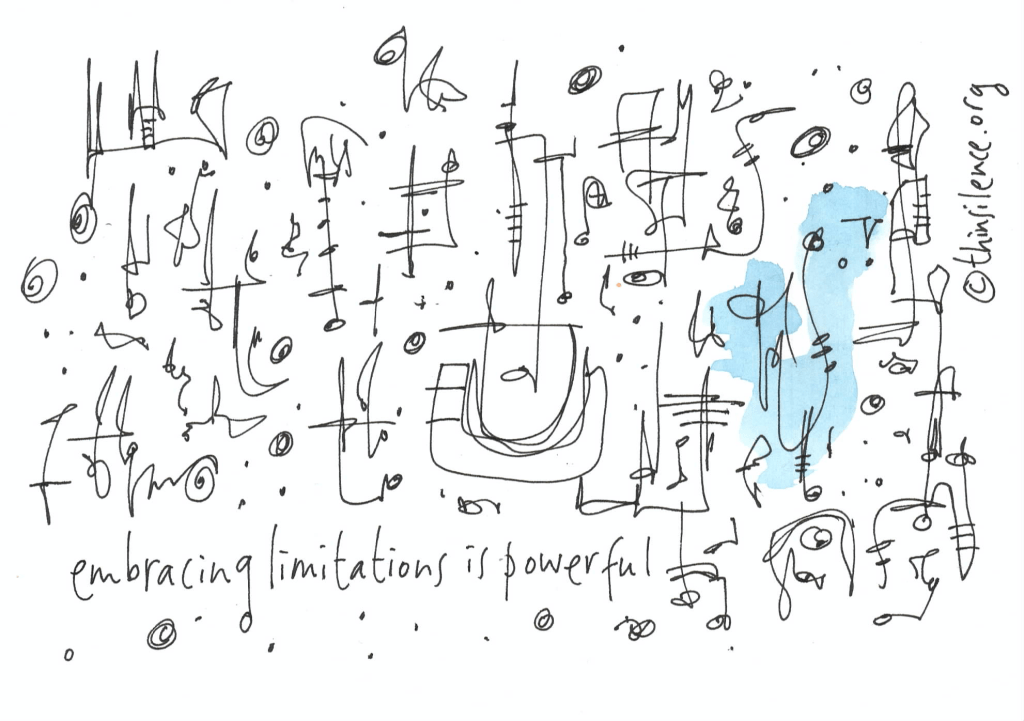 embracing limitations is powerful
©thinsilence.org